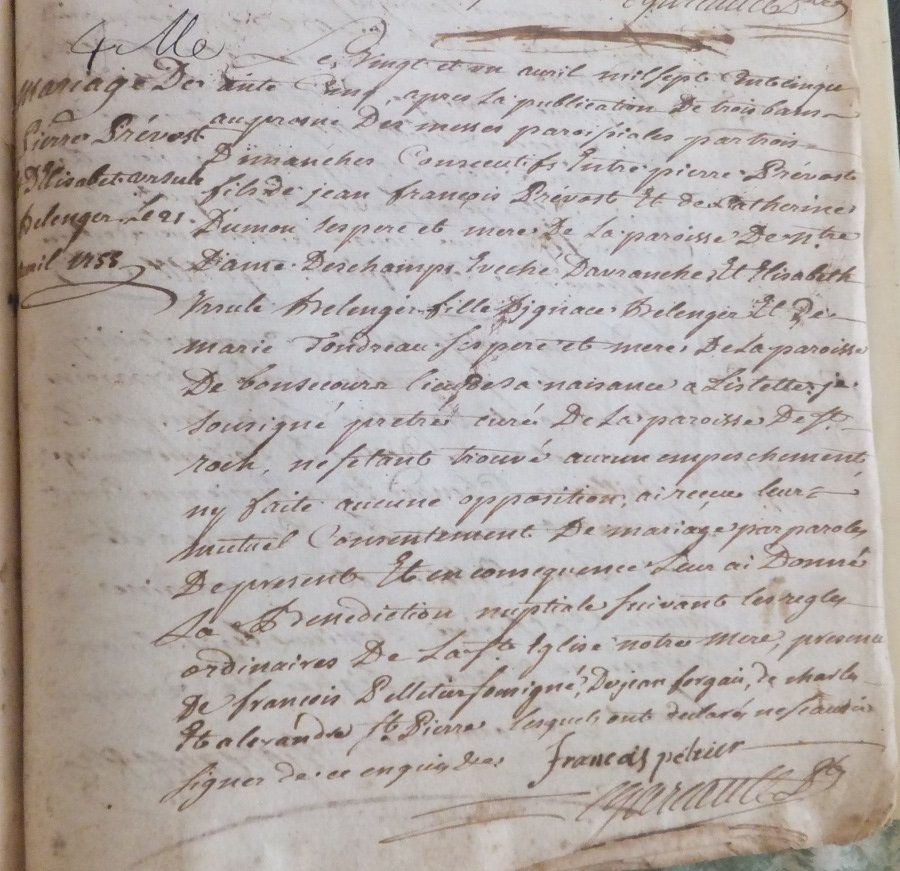 4 Me
mariage De
Pierre Prévost
D'Elisabet ursule
Belenger Le 21
avril 1755
Le vingt et un avril mil sept Cent cinqu
ante Cinq, apres La publication De trois bans
au prosne Des messes paroissiales par trois
Dimanches Consecutifs Entre pierre Prévost
fils de jean françois Prévost Et de Catherine
Dumou ses pere et mere De La paroisse De ntre
Dame Deschamps Eveché Davranches Et Elisabeth
Ursule Belenger fille D'ignace Belenger Et De
marie ses pere et mere De La paroisse
De bonsecours lieu de sa naisance a Listette je
sousigné pretre curé De La paroisse De st
roch, ne setant trouvé aucun empeschement
ny faite aucune opposition, ai reçeu leur
mutuel Consentement De mariage par paroles
De present Et en consequence Leur ai Donné
La Benediction nuptiale suivant les regles
ordinaires De La ste Eglise notre mere, presence
De françois Pelletier sousigné, De jean de charles
Et alexandre st Pierre lesquels ont declarés ne scavoir
signer de ce enquis
francois peltier